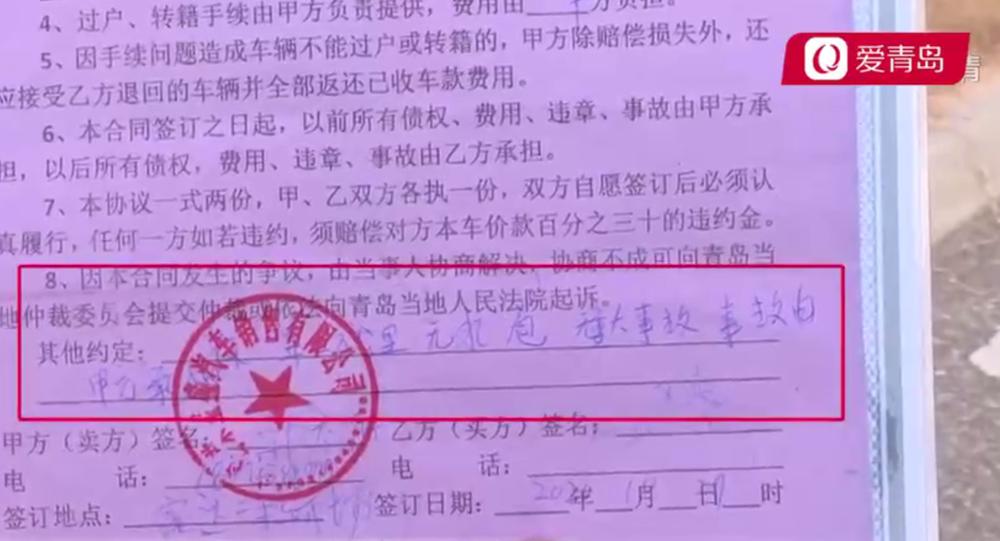 4、过户、转籍手续由甲方负责提供，费用由 方负担。
爱青岛
5、因手续问题造成车辆不能过户或转籍的，甲方除赔偿损失外，还
应接受乙方退回的车辆并全部返还已收车款费用。
6、本合同签订之日起，以前所有债权、费用、违章、事故由甲方承
担，以后所有债权，费用、违章、事故由乙方承担。
7、本协议一式两份，甲、乙双方各执一份，双方自愿签订后必须认
真履行，任何一方如若违约，须赔偿对方本车价款百分之三十的违约金。
8、因本合同发生的争议，由当事人协商解决，协商不成可向青岛当
地仲裁委员会提交仲裁或依法向青岛当地人民法院起诉。
其他约定： 公里 大事故 事故由
甲方
汽车销售有限公司
甲方（卖方）签名： 乙方（买方）签名：
电 话： 电 话：
签订地点： 签订日期： 年 1月 日 时